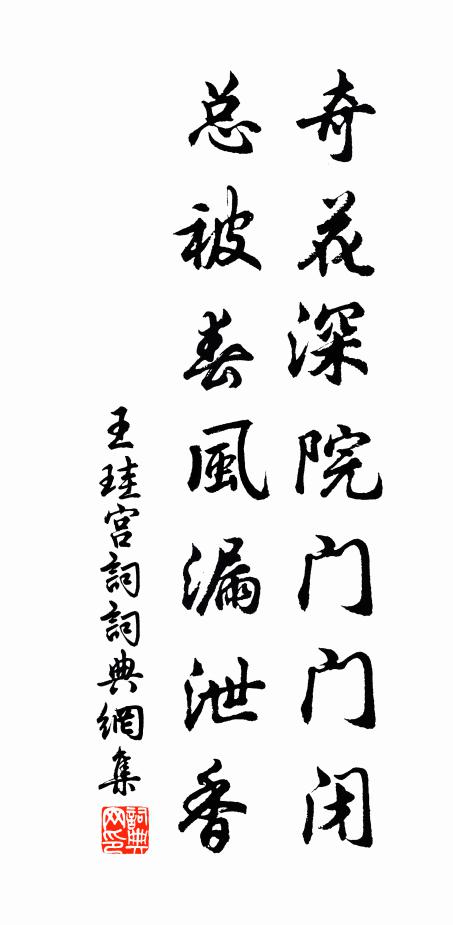 奇花深院门门闭
总被春風漏泄香
王珪宫詞詞典網集
詞典网印